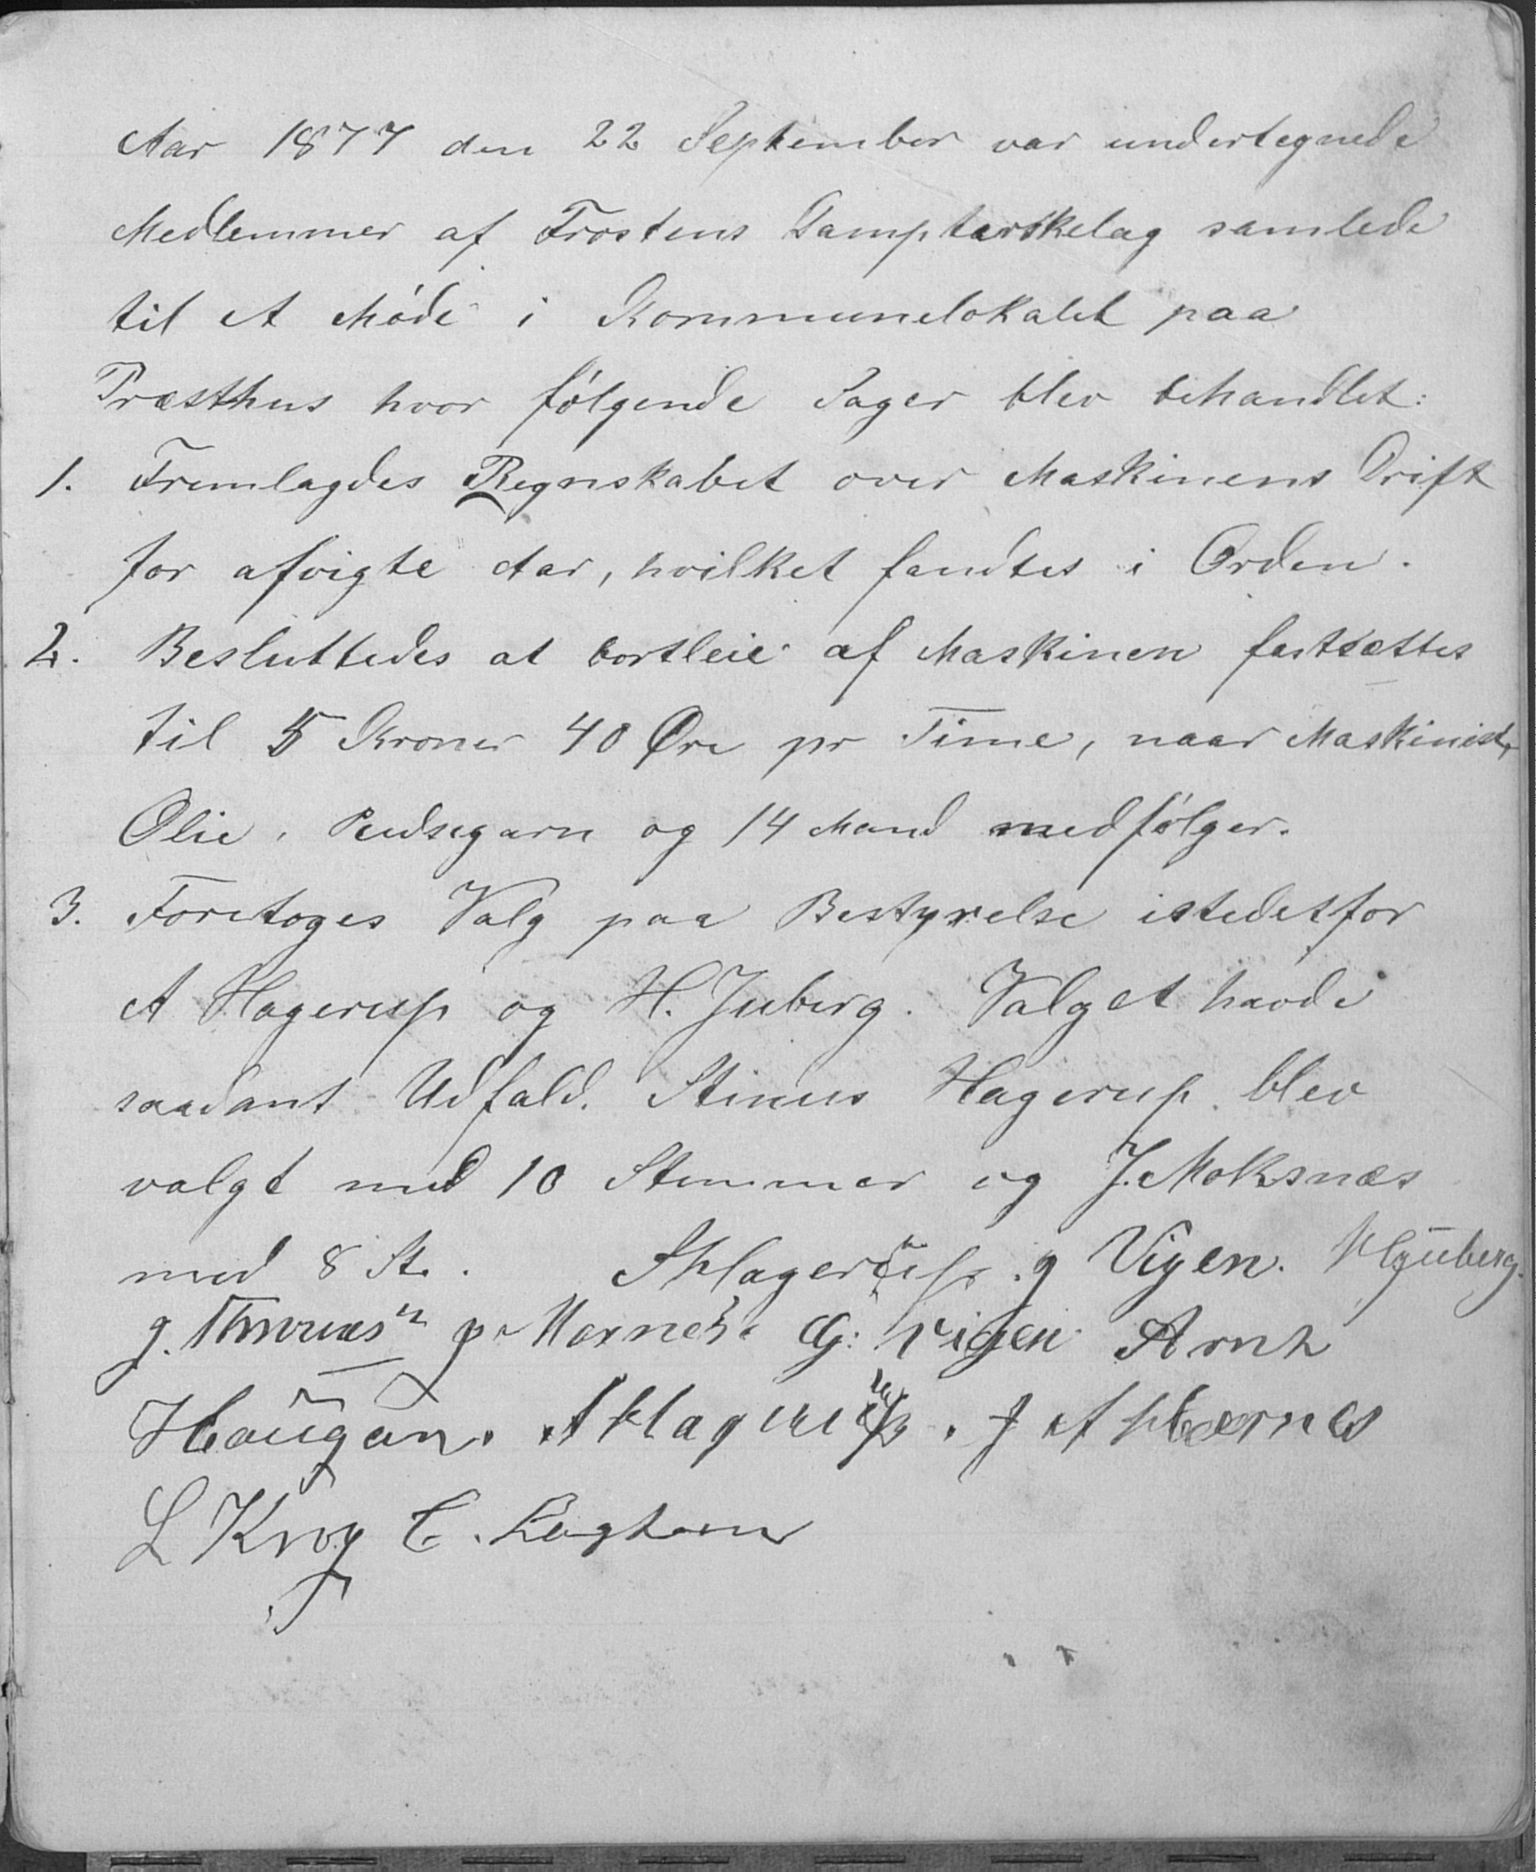 Aar 1877 den 22 September var undertegnede
Medlemmer af Frostens Damptærskelag samlede
til et Møde i Kommunelokalet paa
Præsthus hvor følgende Sager blev behandlet:
1. Fremlagdes Regnskabet over Maskinens Drift
for afvigte Aar, hvilket fandtes i Orden.
2. Besluttedes at bortleie af Maskinen fastsættes
til 5 Kroner 40 Øre pr Time, naar Maskinist,
Olie, Pudsegarn og 14 Mand medfølger.
3. Foretoges Valg paa Bestyrelse istedetfor
A Hagerup og H. Juberg. Valget havde
saadant Udfald. Stinus Hagerup blev
valgt med 10 Stemmer og J. Moksnæs
med 8 St. S Hagerup. g Vigen. H Juberg.
g. P. G: Vigen Arnt
Haugan. A Hagerup. J A Hernes
L Krog C.